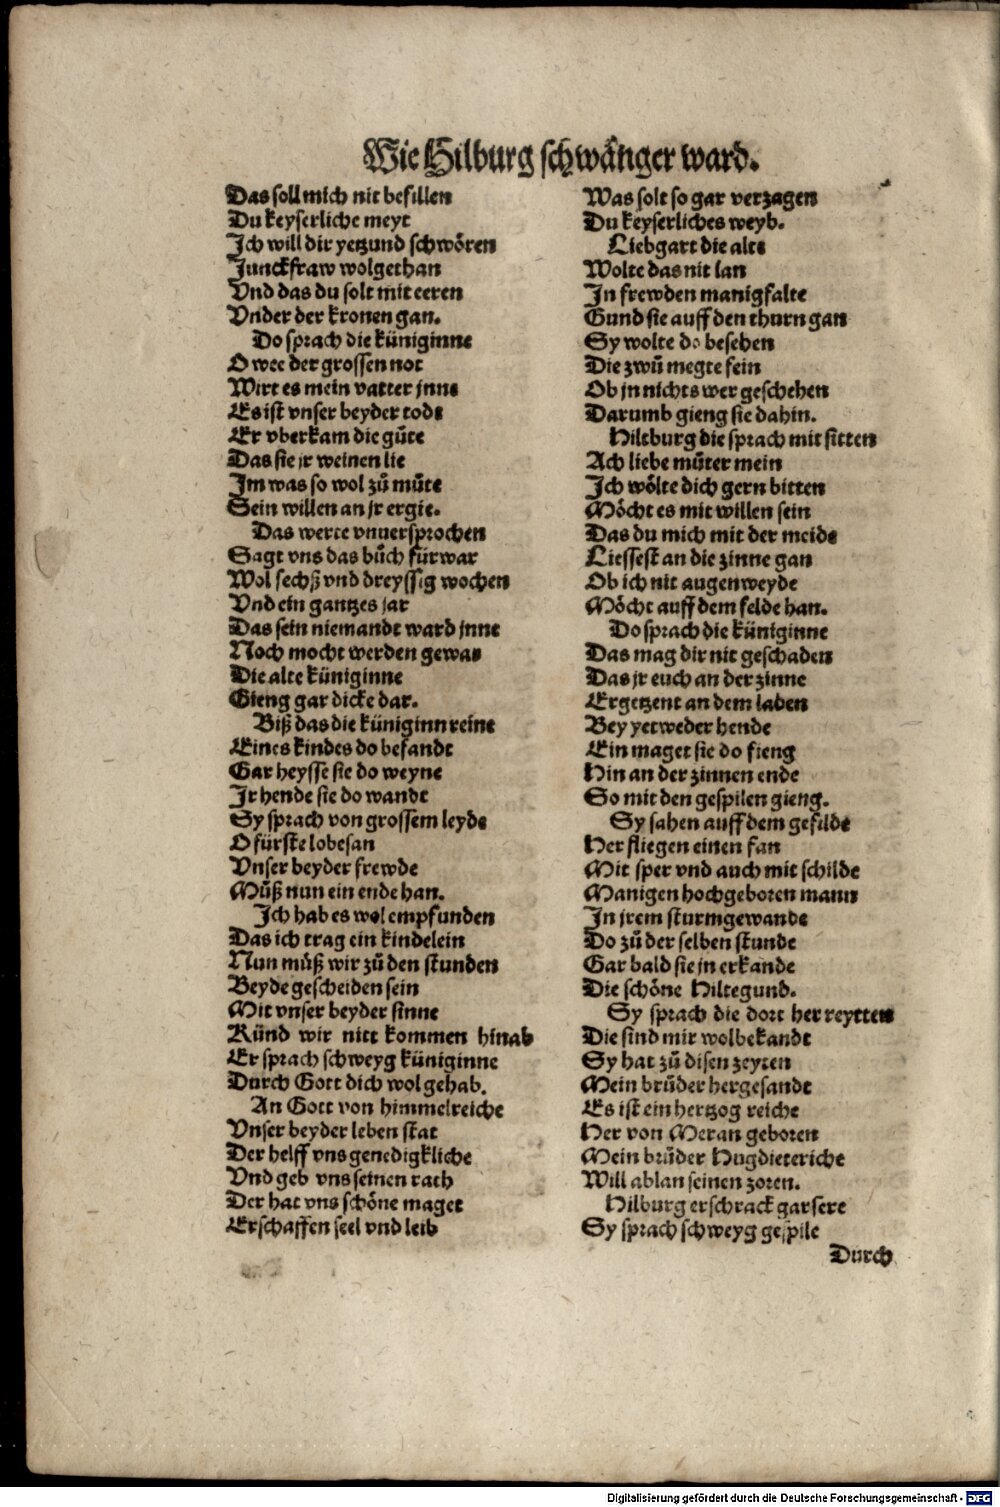 Wie Hilburg schwånger ward.
Das soll mich nit befillen
Du keyserliche meyt
Ich will dir yetzund schwören
Junckfraw wolgethan
Vnd das du solt mit eeren
Vnder der kronen gan.
Do sprach die küniginne
O wee der grossen not
Wirt es mein vatter jnne
Es ist vnser beyder tode
Er vberkam die gůte
Das sie jr weinen lie
Im was so wol zů můte
Sein willen an jr ergie.
Das werte vnuersprochen
Sagt vns das bůch fürwar
Wol sechß vnd dreyssig wochen
Vnd ein gantzes jar
Das sein niemandt ward jnne
Noch mocht werden gewar
Die alte küniginne
Gieng gar dicke dar.
Biß das die küniginn reine
Eines kindes do befandt
Gar heysse sie do weyne
Ir hende sie do wandt
Sy sprach von grossem leyde
O fürste lobesan
Vnser beyder frewde
Můß nun ein ende han.
Ich hab es wol empfunden
Das ich trag ein kindelein
Nun můß wir zů den stunden
Beyde gescheiden sein
Mit vnser beyder sinne
Künd wir nitt kommen hinab
Er sprach schweyg küniginne
Durch Gott dich wol gehab.
An Gott von himmelreiche
Vnser beyder leben stat
Der helff vns genedigkliche
Vnd geb vns seinen rath
Der hat vns schöne maget
Erschaffen seel vnd leib
Was solt so gar verzagen
Du keyserliches weyb.
Liebgart die alte
Wolte das nit lan
In frewden manigfalte
Gund sie auff den thurn gan
Sy wolte do besehen
Die zwů megte fein
Ob jn nichts wer geschehen
Darumb gieng sie dahin.
Hiltburg die sprach mit sitten
Ach liebe můter mein
Ich wölte dich gern bitten
Möcht es mit willen sein
Das du mich mit der meide
Liessest an die zinne gan
Ob ich nit augenweyde
Möcht auff dem felde han.
Do sprach die küniginne
Das mag dir nit geschaden
Das jr euch an der zinne
Ergetzent an dem laden
Bey yetweder hende
Ein maget sie do fieng
Hin an der zinnen ende
So mit den gespilen gieng.
Sy sahen auff dem gefilde
Her fliegen einen fan
Mit sper vnd auch mit schilde
Manigen hochgeboren mann
In jrem sturmgewande
Do zů der selben stunde
Gar bald sie jn erkande
Die schöne Hiltegund.
Sy sprach die dort her reytten
Die sind mir wolbekandt
Sy hat zů disen zeyten
Mein brůder hergesandt
Es ist ein hertzog reiche
Her von Meran geboren
Mein brůder Hugdieteriche
Will ablan seinen zoren.
Hilburg erschrack gar sere
Sy sprach schweyg gespile
Durch
Digitalisierung gefördert durch die Deutsche Forschungsgemeinschaft - DFG